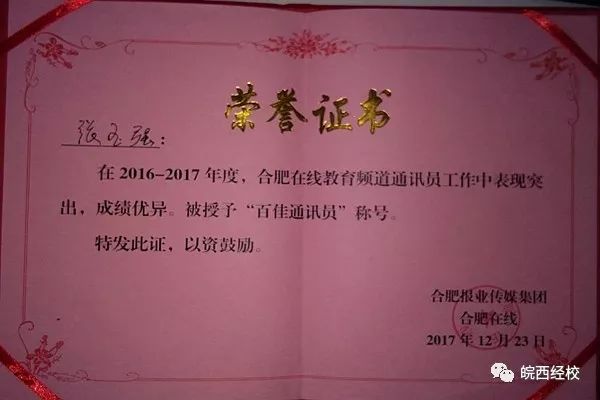 荣誉证书
张玉强：
在2016-2017年度，合肥在线教育频道通讯员工作中表现突
出，成绩优异。被授予“百佳通讯员”称号。
特发此证，以资鼓励。
合肥报业传媒集团
合肥在线
2017年12月23日
皖西经校